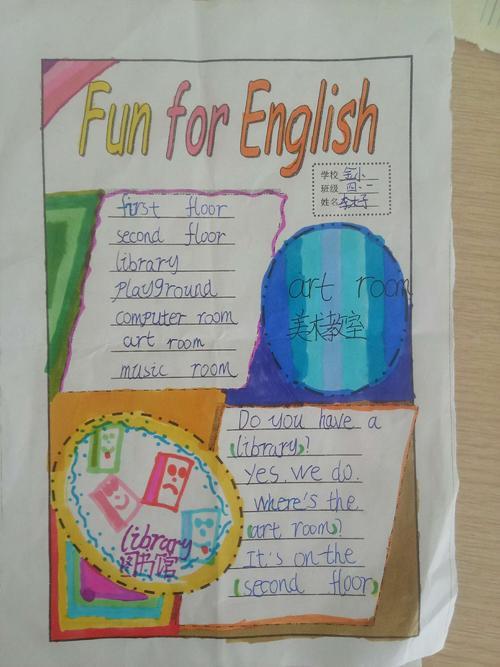 Fun for English
学校 金小
班级 四·一
姓名
first floor
second floor
library
playground
computer room
art room
music room
art room
美术教室
Do you have a
(library)?
Yes. we do.
where's the
(art room)?
It's on the
(second floor)
library
图书馆